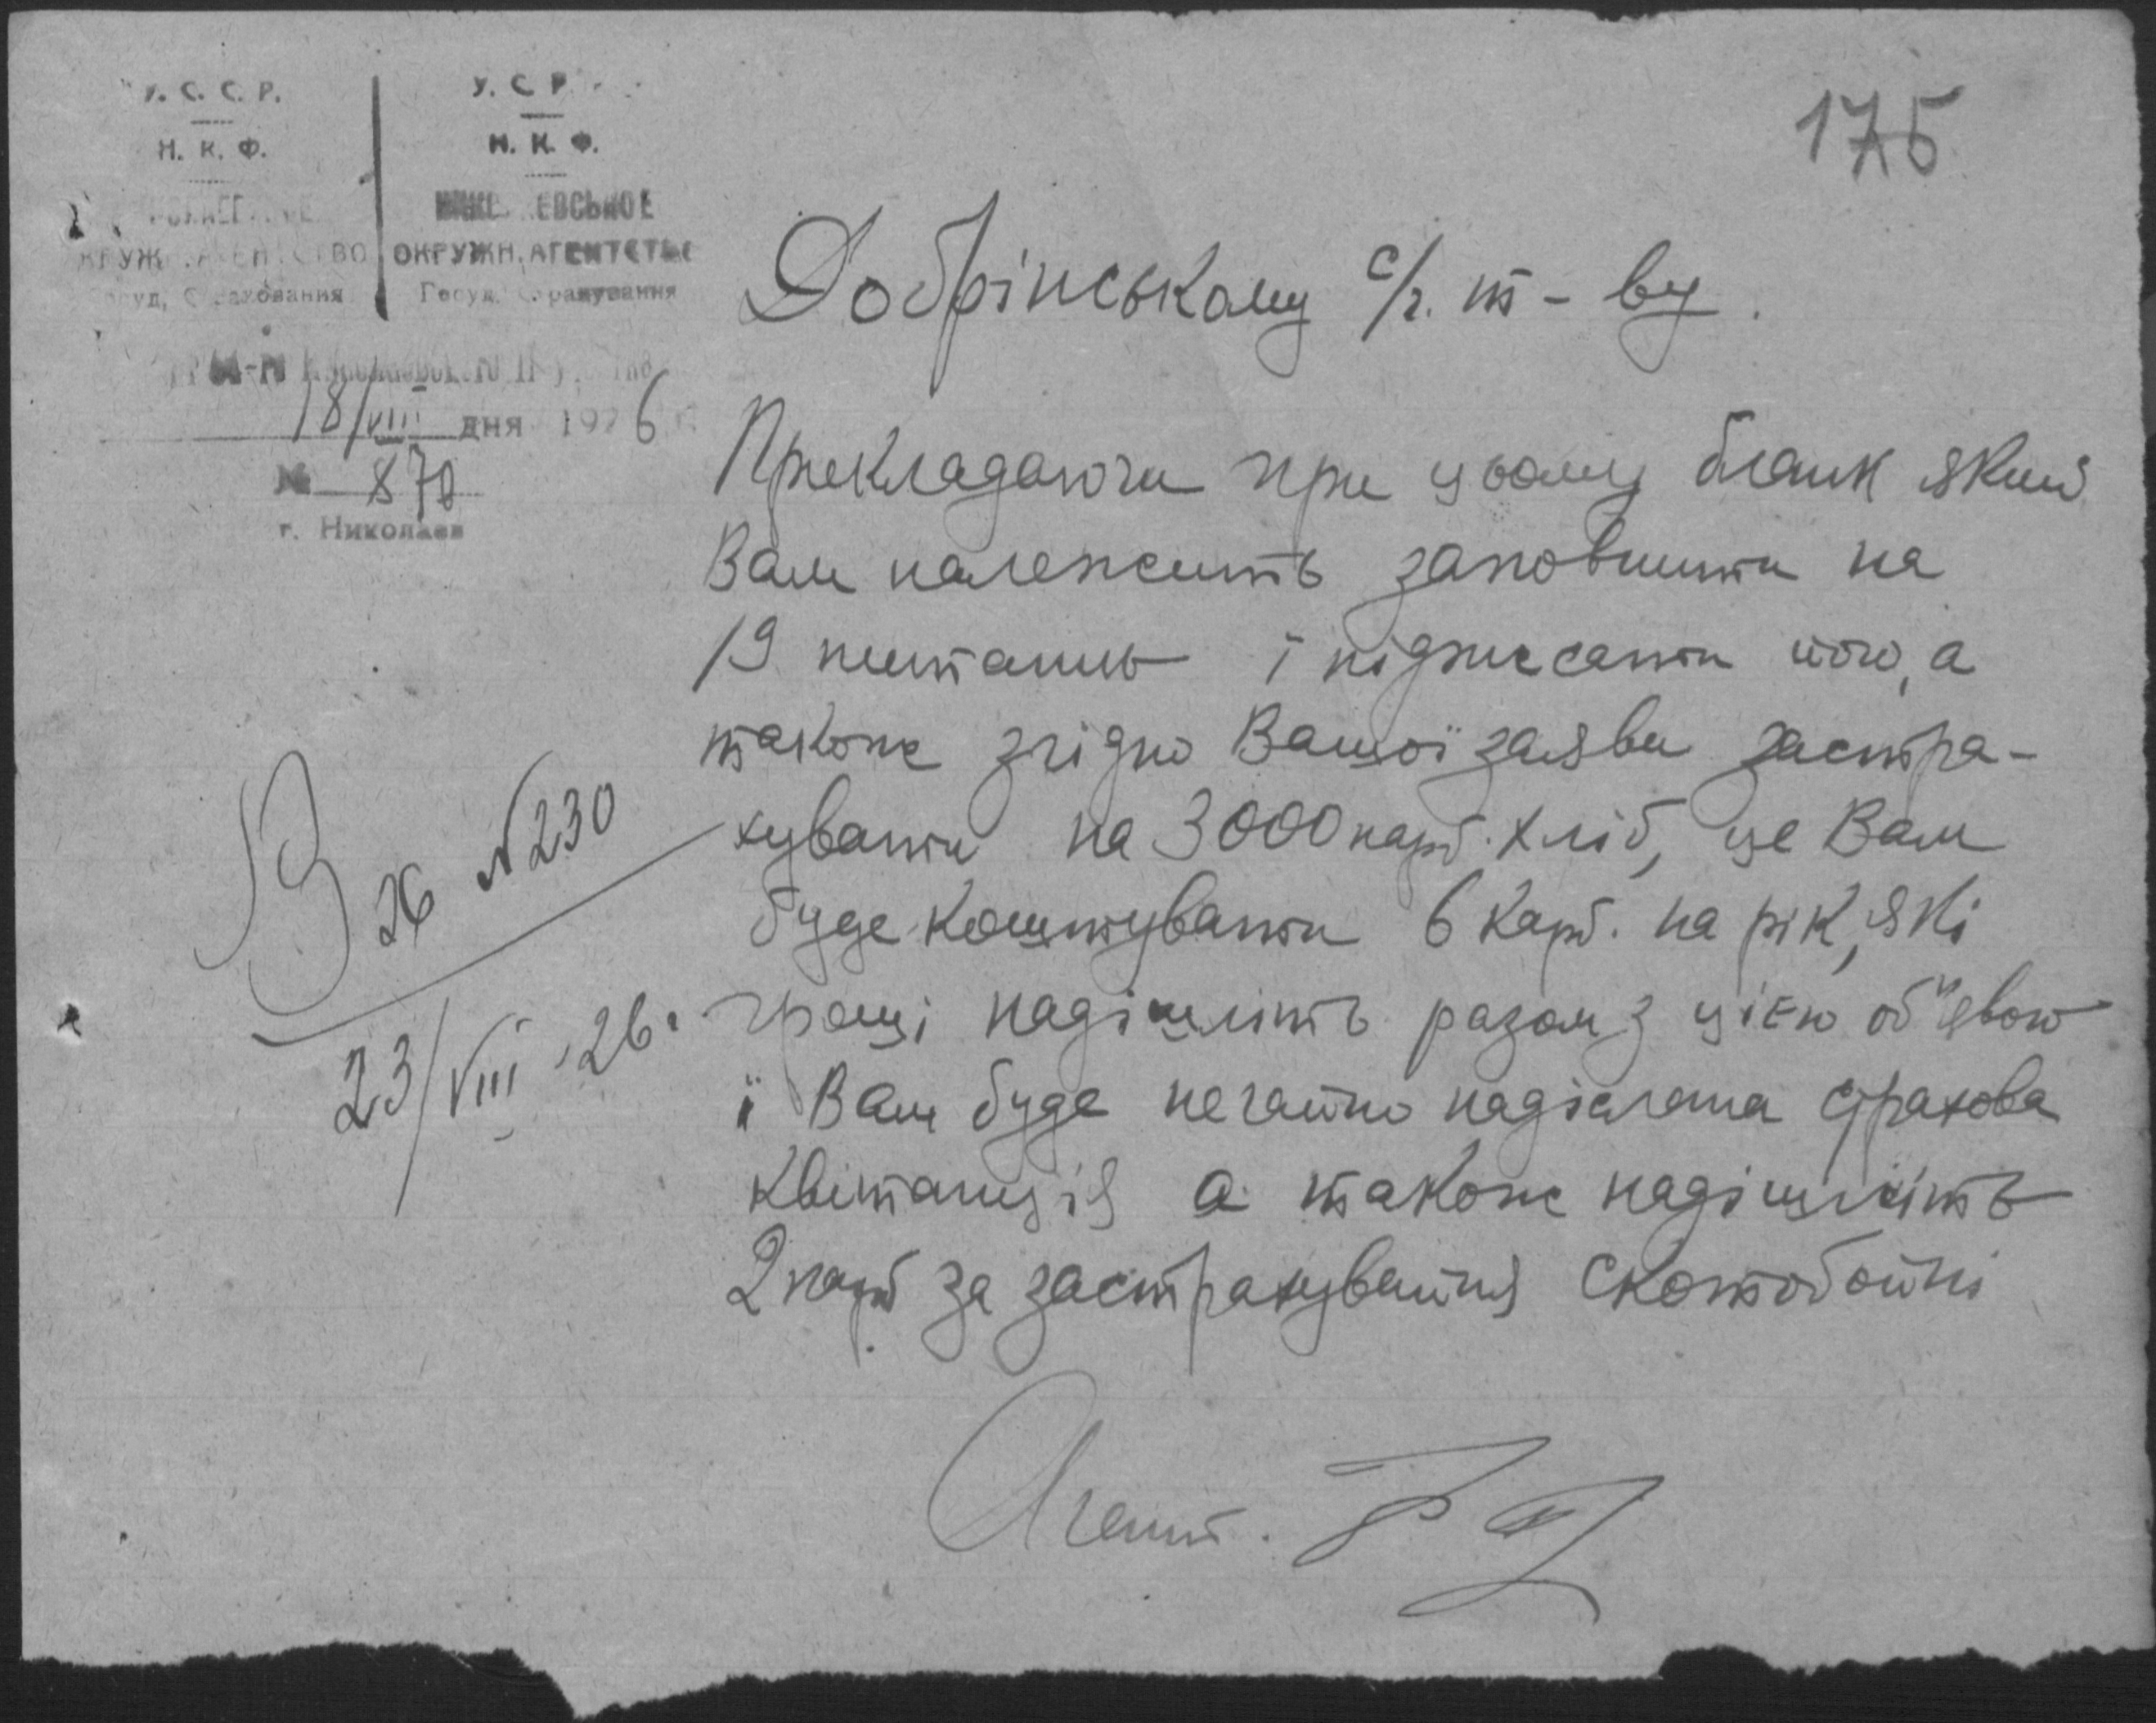 175
У. С. С. Р.
Н. К. Ф.
У. С. Р.
Н. К. Ф.
ОКРУЖН. АГЕНТСТВ
18/VIII дня 1926
№ 870
г. Николаев
Добрінському с/г. т-ву.
Прикладаючи при цьому бланк який
Вам належить заповнити на
19 питаннь і підписати його, а
також згідно Вашої заяви застра-
хувати на 3000 карб. хліб, це Вам
буде коштувати 6 карб. на рік, які
гроші надішліть разом з цією об'явою
і Вам буде негайно надіслана страхова
квітанція а також надішліть
2 карб за застрахування скотобойні
Агент.
Вх №230
23/VIII 26.